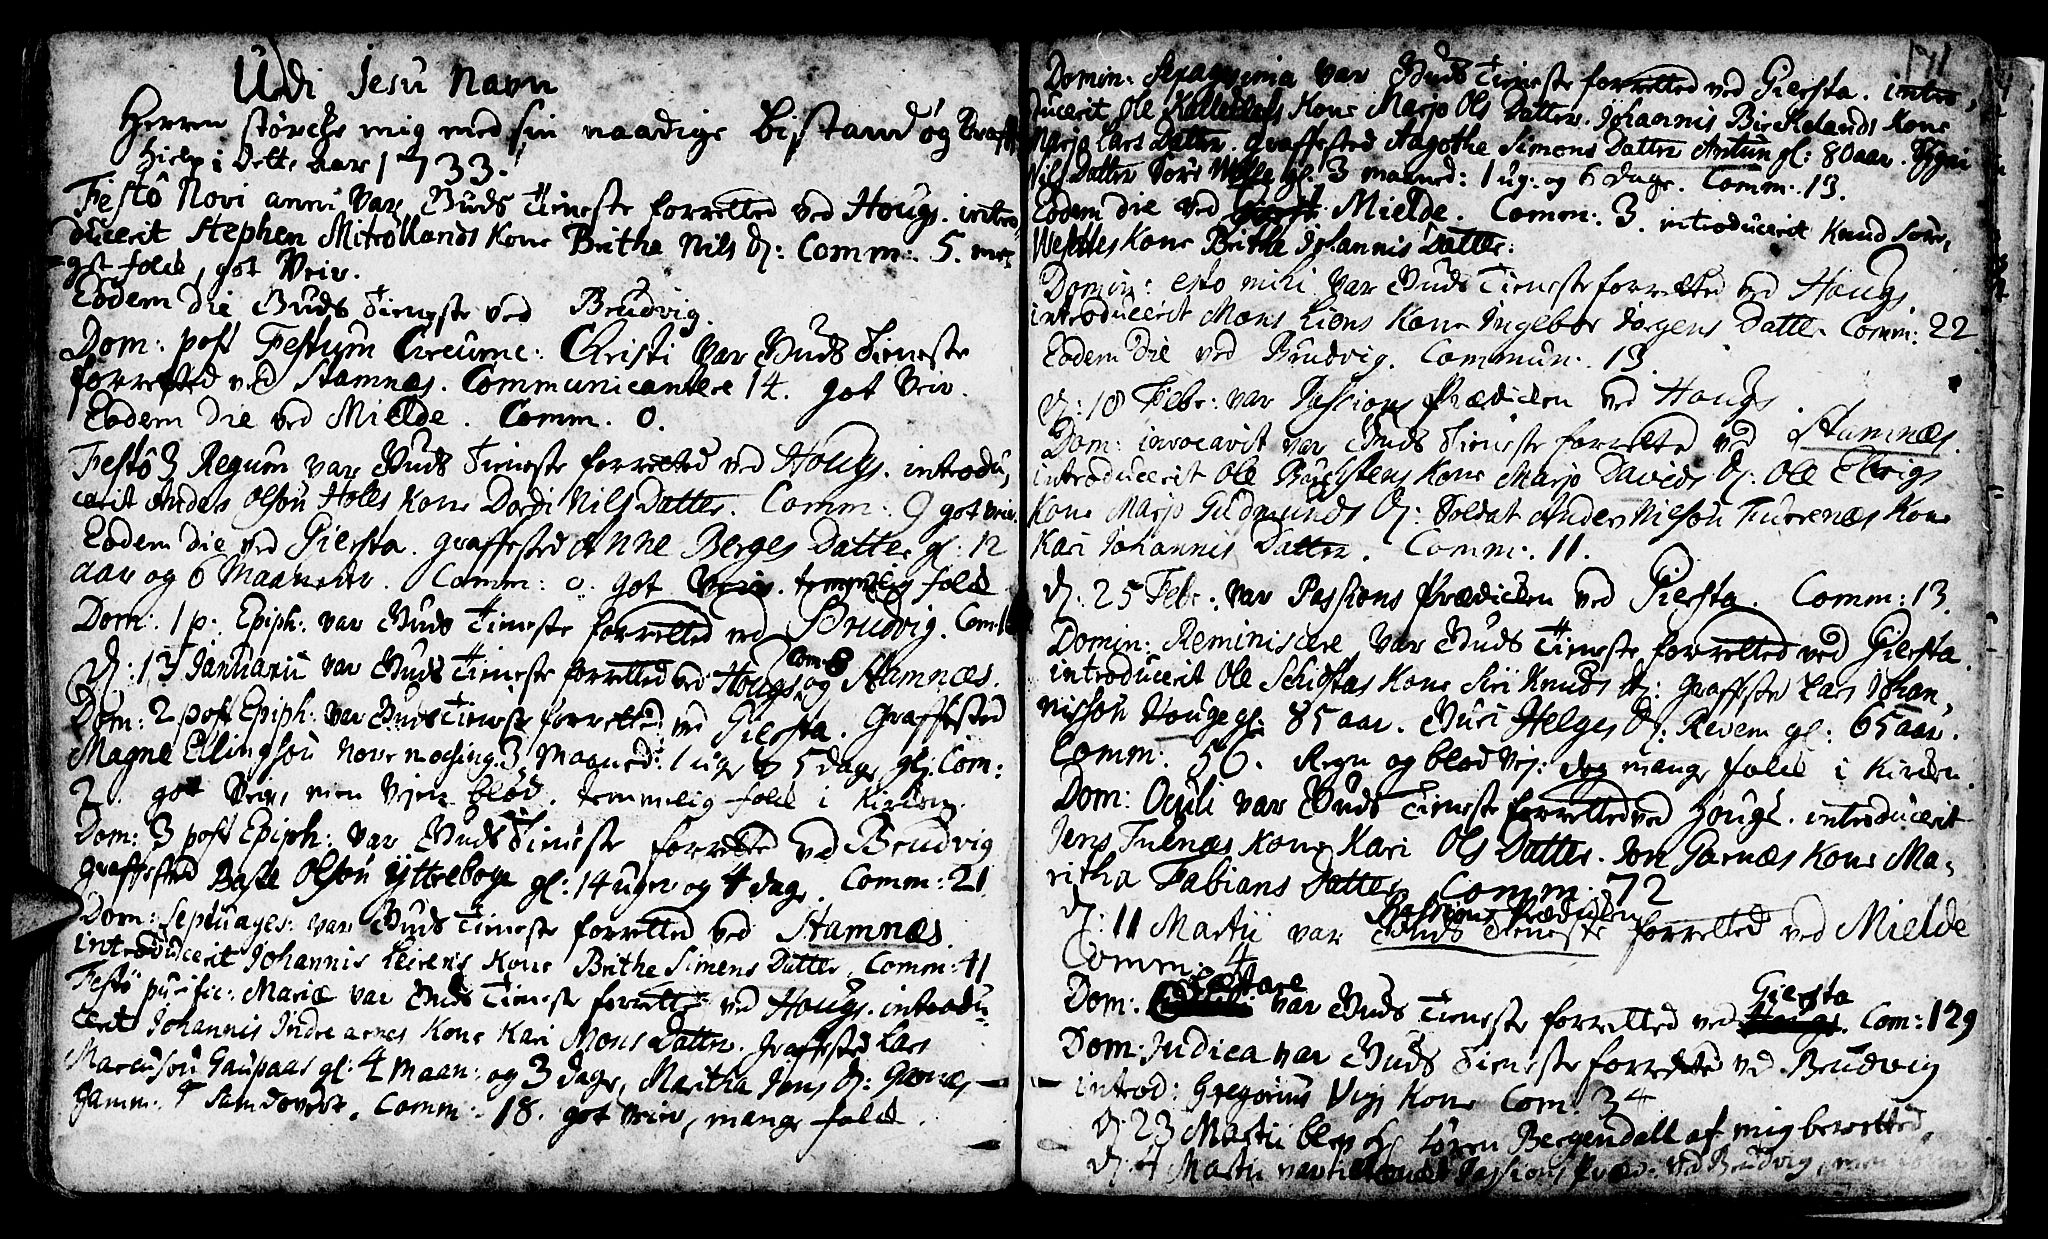 Udi Jesu Navn
Herren størche mig med sin naadige bistand og Krafft
hielp i dette aar 1733.
Festô Novi anni var Guds Tieneste forretted ved Hougs. intro,
ducerit Stephen Mitrollands Kone Brithe Nils D: Comm: 5. me-
get folck, got Veir.
Eodem die Guds Tieneste ved Brudvig.
Dom: post Festum Circumc: Christi var Guds Tieneste
forretted ved Stamnæs. Communicantere 14. got Veir.
Eodem die ved Mielde. Comm. 0.
Festô 3 Regum var Guds Tieneste forretted ved Hougs. introdu,
cerit Anders Olsøn Holes Kone Dordi Nils Datter. Comm: 9 got veir.
Eodem die ved Giersta. Graffested Anne Berges Datter gl: 12
aar og 6 Maaneder. Comm: 0. got Veir. temmelig folck
Dom: 1 p: Epiph: var Guds Tieneste forretted ved Brudvig. Com:
D: 13 Januarii var Guds Tieneste forretted ved Hougs Com: 8 og Stamnæs.
Dom: 2 post Epiph: var Guds Tieneste forretted ved Giersta. Graffested
Magne Ellingsøn 3 Maaned: 1 uge & 5 dage gl: Com:
2. got Veir, men Vejen blød. temmelig folck i Kircken.
Dom: 3 post Epiph: var Guds Tieneste forretted ved Brudvig
graffested Baste Olsøn Ytreboge gl: 14 uger og 4 dage. Comm: 21
Dom: Septuages: var Guds Tieneste forretted ved Stamnæs.
introducerit Johannis Leirens Kone Brithe Simens Datter. Comm: 41
Festô purific: Mariæ var Guds Tieneste forretted ved Hougs. introdu-
cerit Johannis Indre arnes Kone Kari Mons Datter. Graffested Lars
Marcusøn Gaupaas gl: 4 Maan: og 3 dage, Maritha Jens D: Garnes
gamm: Comm: 18. got veir, mange folck.
171
Domin: Sexagesima var Guds Tieneste forretted ved Giersta. intro,
ducerit Ole Kone Marjo Ols Datter. Johannis Birkelands Kone
Marjo Lars Datter. graffested Aagothe Simons Datter Antun gl: 80 aar.
Nils Datter gl: 3 maaned: 1 ug: og 6 dage. Comm: 13.
Eodem die ved Mielde. Comm: 3. introducerit Knud
Kone Brithe Johannis Datter:
Domin: esto mihi var Guds Tieneste forretted ved Hougs
introducerit Mons Lions Kone Ingebor Jørgens Datter Comm: 22.
Eodem Die ved Brudvig. Commun: 13.
D: 18 Febr: var Passions Prædicken ved Hougs.
Dom: invocavit var Guds Tieneste forretted ved Stamnæs.
introducerit Ole Kone Marjo Davids D: Ole Elvigs
Kone Marjo Gudmunds D: Soldat Anders Nielsøn Furrenæs Kone
Kari Johannis Datter. Comm: 11.
D: 25 Febr: var Passions Prædicken ved Giersta. Comm: 13.
Domin: Reminiscere var Guds Tieneste forretted ved Giersta.
introducerit Ole Schiøstas Kone Siri Knuds D: Graffested Lars Johan,
nissøn Houge gl: 85 aar. Guri Helges D: Revem gl: 65 aar.
Comm: 56. Regn og blød Vej: dog mange folck i Kircken.
Dom: Oculi var Guds Tieneste forretted ved Hougs. introducerit
Jens Tulnæs Kone Kari Ols Datter. Jon Garnæs Kone Ma-
ritha Fabians Datter Comm: 72
D: 11 Martii var Passions Prædicken Guds Tieneste forretted ved Mielde
Comm: 4
Dom: Lætare var Guds Tieneste forretted ved Giersta Hougs. Com: 129
Dom: Judica var Guds Tieneste forretted ved Brudvig
introd: Gregorius Vigs Kone Com: 34
D: 23 Martii blev Hr Søren Bergendall af mig beretted.
D: 4 Martii var Passions Præd: ved Brudvig, men